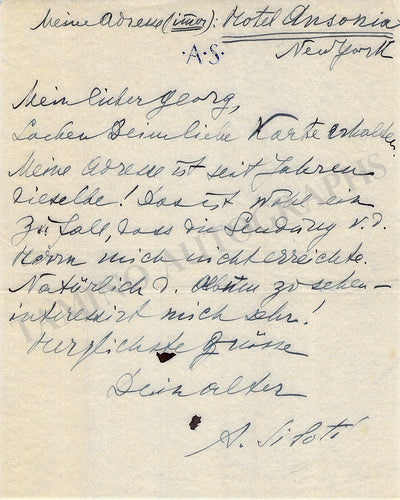 Meine Adresse (immer): Hotel Ansonia
New York
·A·S·
Mein lieber Georg,
Soeben Deine liebe Karte erhalten.
Meine Adresse ist seit Jahren
dieselbe! Das ist wohl ein
Zufall, dass die Sendung v. d.
mich nicht erreichte.
Natürlich d. Album zu sehen –
interessirt mich sehr!
Herzlichste Grüsse
Dein alter
A. Siloti
TAMINO AUTOGRAPHS